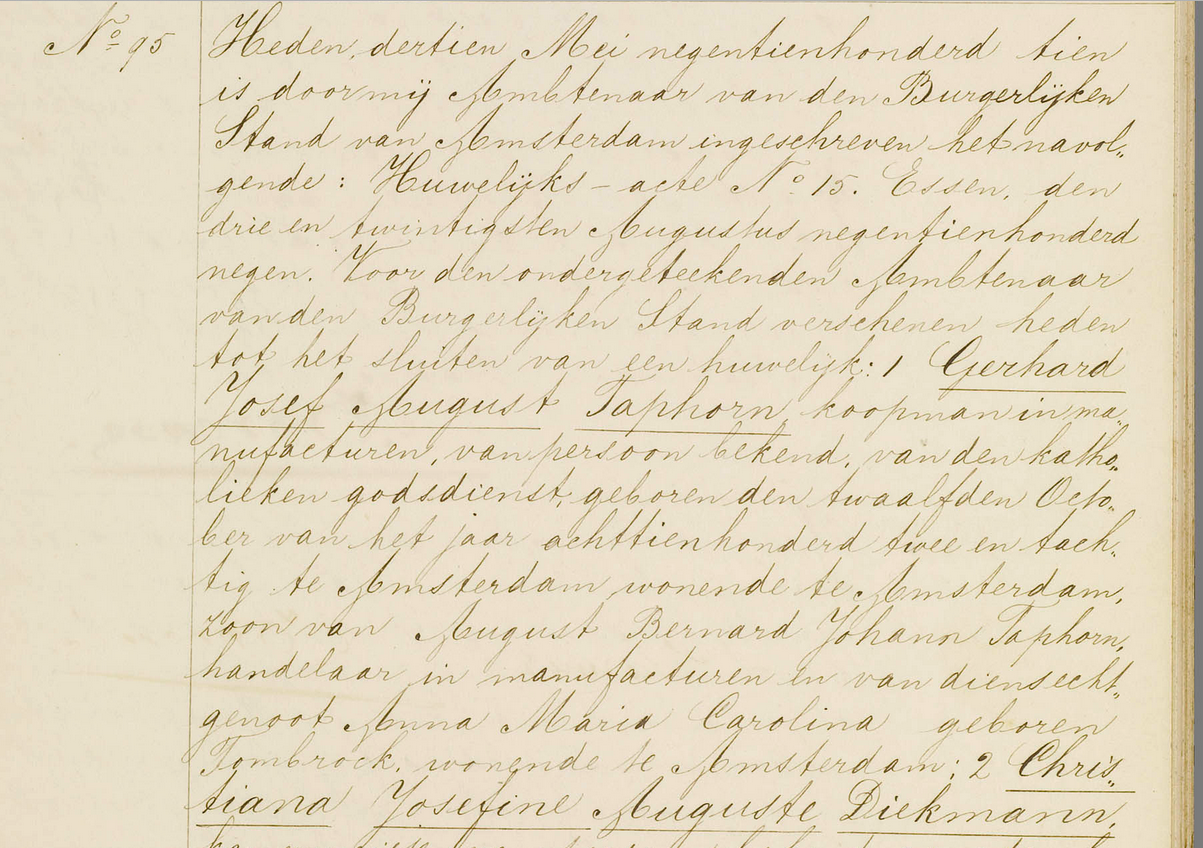 No 95
Heden, dertien Mei negentienhonderd tien
is door mij Ambtenaar van den Burgerlijken
Stand van Amsterdam ingeschreven het navol„
gende: Huwelijks - acte No 15. Essen, den
drie en twintigsten Augustus negentienhonderd
negen. Voor den ondergeteekenden Ambtenaar
van den Burgerlijken Stand verschenen heden
tot het sluiten van een huwelijk: 1 Gerhard
Josef August Taphorn, koopman in ma„
nufacturen, van persoon bekend, van den katho„
lieken godsdienst, geboren den twaalfden Octo„
ber van het jaar achttienhonderd twee en tach„
tig te Amsterdam, wonende te Amsterdam,
zoon van August Bernard Johann Taphorn,
handelaar in manufacturen en van diens echt„
genoot Anna Maria Carolina geboren
Tombrock, wonende te Amsterdam; 2 Chris„
tiana Josefine Auguste Diekmann,